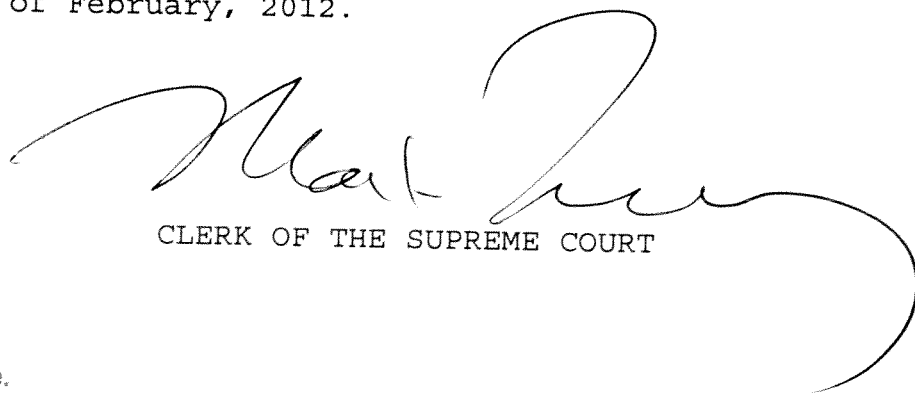 of February, 2012.
Mark
CLERK OF THE SUPREME COURT